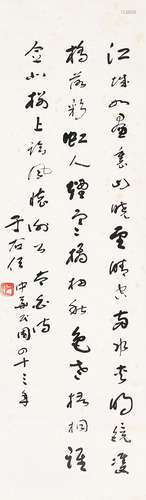 江城如畫裏山曉望晴空兩水夾明鏡雙
橋落彩虹人煙寒橘柚秋色老梧桐誰
念北樓上臨風懷謝公 太白詩
于右任 中華民國四十三年